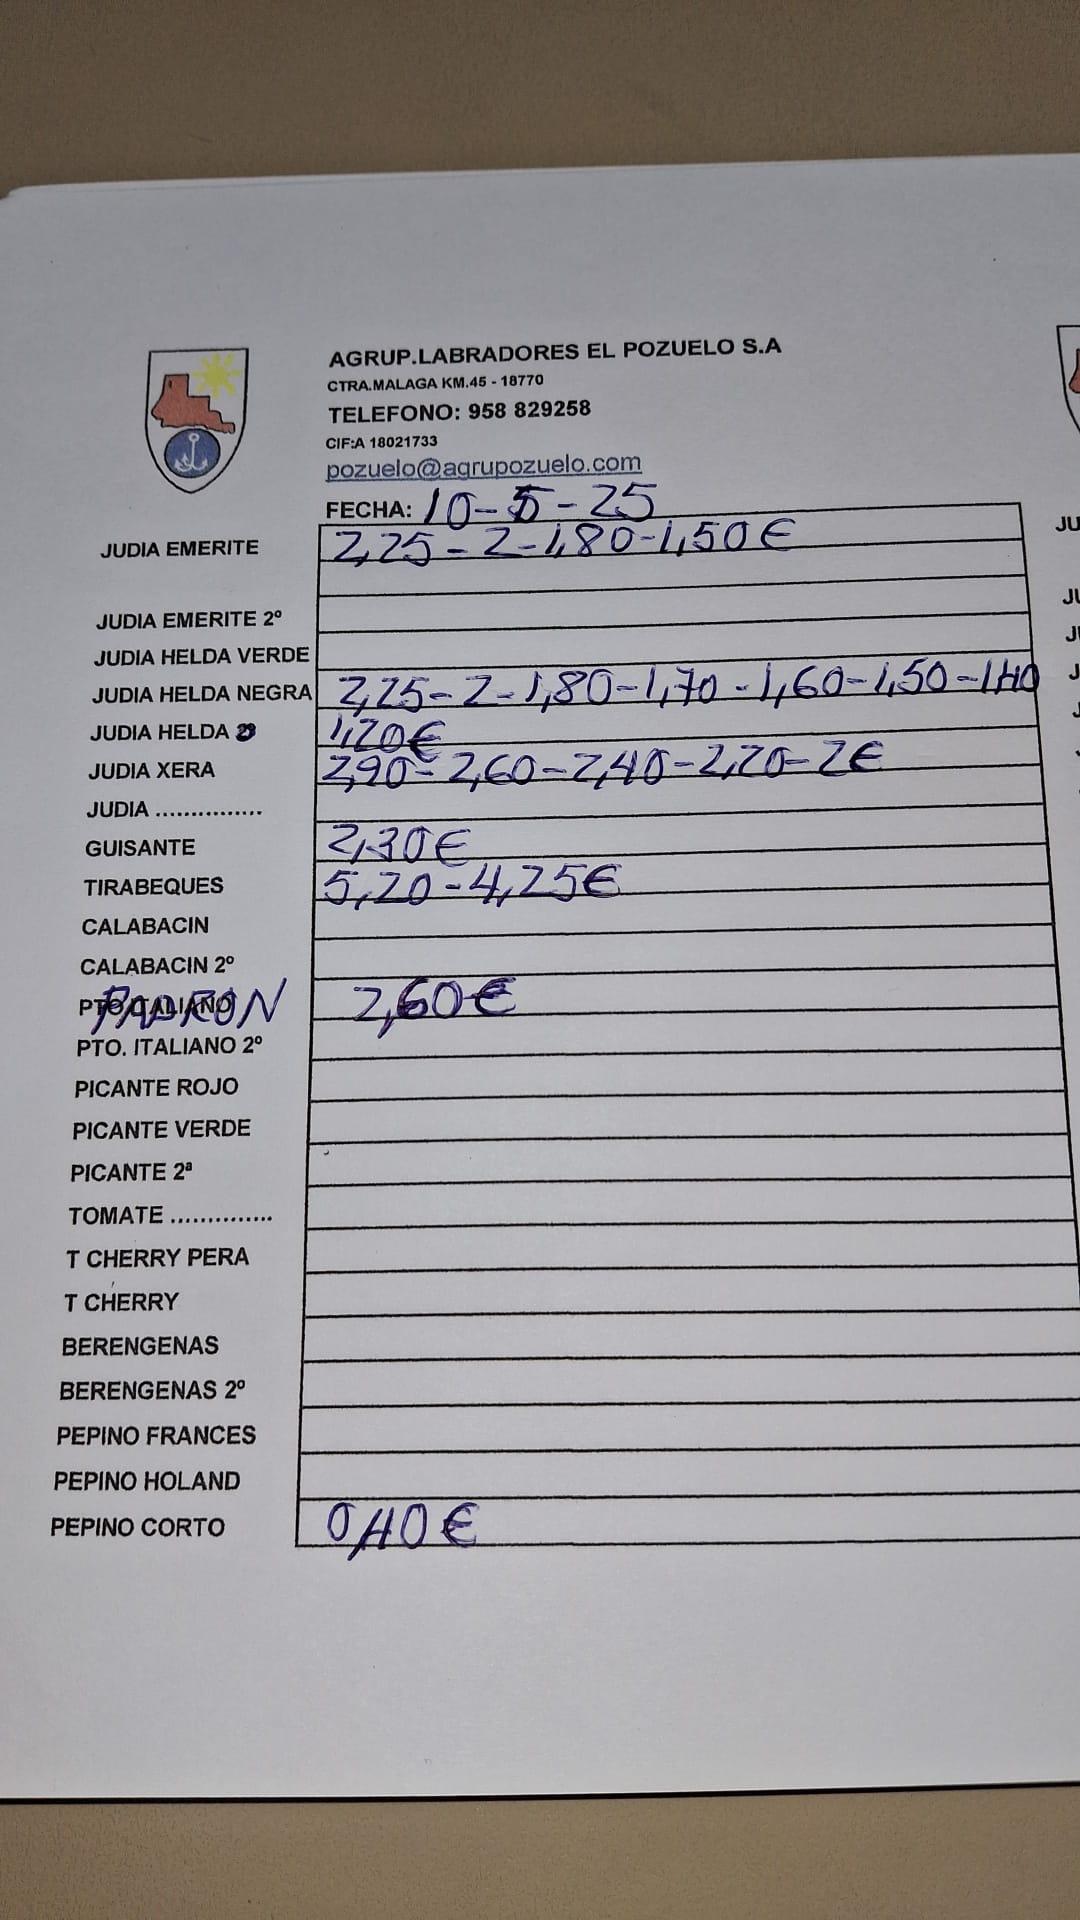 AGRUP.LABRADORES EL POZUELO S.A
CTRA.MALAGA KM.45 - 18770
TELEFONO: 958 829258
CIF:A 18021733
pozuelo@agrupozuelo.com
FECHA: 10-5-25
JUDIA EMERITE 2,25-2-1,80-1,50€
JUDIA EMERITE 2º
JUDIA HELDA VERDE
JUDIA HELDA NEGRA 2,25-2-1,80-1,70-1,60-1,50-1,40
JUDIA HELDA 1,20€
JUDIA XERA 2,90-2,60-2,40-2,20-2€
JUDIA ...............
GUISANTE 2,30€
TIRABEQUES 5,20-4,25€
CALABACIN
CALABACIN 2º
PTO.ITALIANO PADRON 2,60€
PTO. ITALIANO 2º
PICANTE ROJO
PICANTE VERDE
PICANTE 2ª
TOMATE ..............
T CHERRY PERA
T CHERRY
BERENGENAS
BERENGENAS 2º
PEPINO FRANCES
PEPINO HOLAND
PEPINO CORTO 0,40€
JU
JU
JU
J